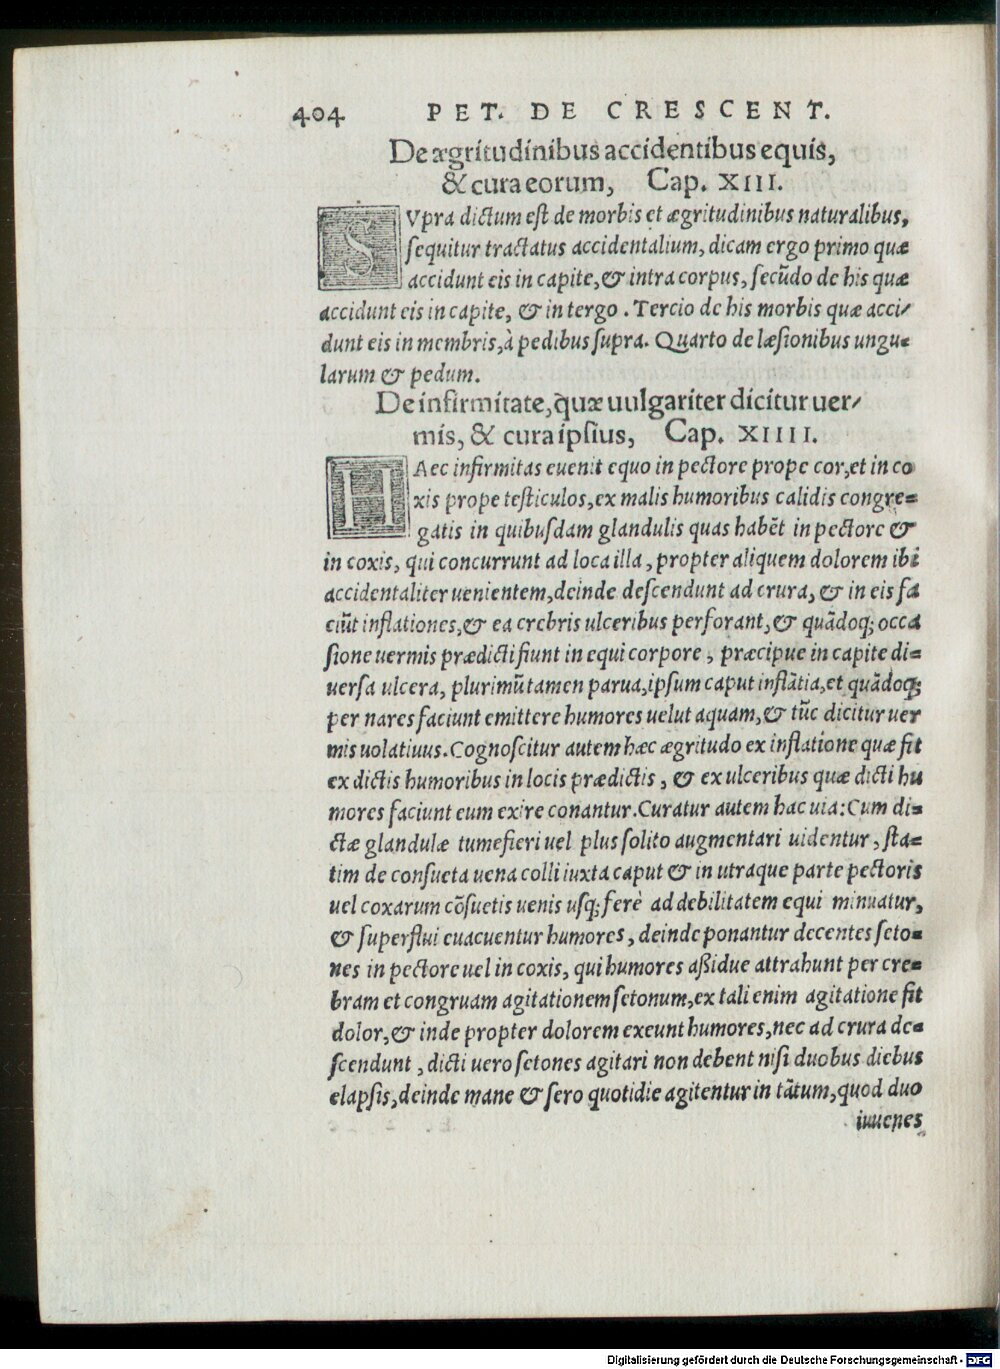 404 PET. DE CRESCENT.
De ægritudinibus accidentibus equis,
& cura eorum, Cap. XIII.
SVpra dictum est de morbis et ægritudinibus naturalibus,
sequitur tractatus accidentalium, dicam ergo primo quæ
accidunt eis in capite, & intra corpus, secūdo de his quæ
accidunt eis in capite, & in tergo. Tercio de his morbis quæ acci/
dunt eis in membris, à pedibus supra. Quarto de læsionibus ungu=
larum & pedum.
De infirmitate, quæ uulgariter dicitur uer/
mis, & cura ipsius, Cap. XIIII.
HAec infirmitas euenit equo in pectore prope cor, et in co
xis prope testiculos, ex malis humoribus calidis congre=
gatis in quibusdam glandulis quas habēt in pectore &
in coxis, qui concurrunt ad loca illa, propter aliquem dolorem ibi
accidentaliter uenientem, deinde descendunt ad crura, & in eis fa
ciūt inflationes, & ea crebris ulceribus perforant, & quādoq; occa
sione uermis prædicti fiunt in equi corpore, præcipue in capite di=
uersa ulcera, plurimū tamen parua, ipsum caput inflātia, et quādoq;
per nares faciunt emittere humores uelut aquam, & tūc dicitur uer
mis uolatiuus. Cognoscitur autem hæc ægritudo ex inflatione quæ fit
ex dictis humoribus in locis prædictis, & ex ulceribus quæ dicti hu
mores faciunt cum exire conantur. Curatur autem hac uia: Cum di=
ctæ glandulæ tumefieri uel plus solito augmentari uidentur, sta=
tim de consueta uena colli iuxta caput & in utraque parte pectoris
uel coxarum cōsuetis uenis usq; ferè ad debilitatem equi minuatur,
& superflui euacuentur humores, deinde ponantur decentes seto=
nes in pectore uel in coxis, qui humores aßidue attrahunt per cre=
bram et congruam agitationem setonum, ex tali enim agitatione fit
dolor, & inde propter dolorem exeunt humores, nec ad crura de=
scendunt, dicti uero setones agitari non debent nisi duobus diebus
elapsis, deinde mane & sero quotidie agitentur in tātum, quod duo
iuuenes
Digitalisierung gefördert durch die Deutsche Forschungsgemeinschaft - DFG